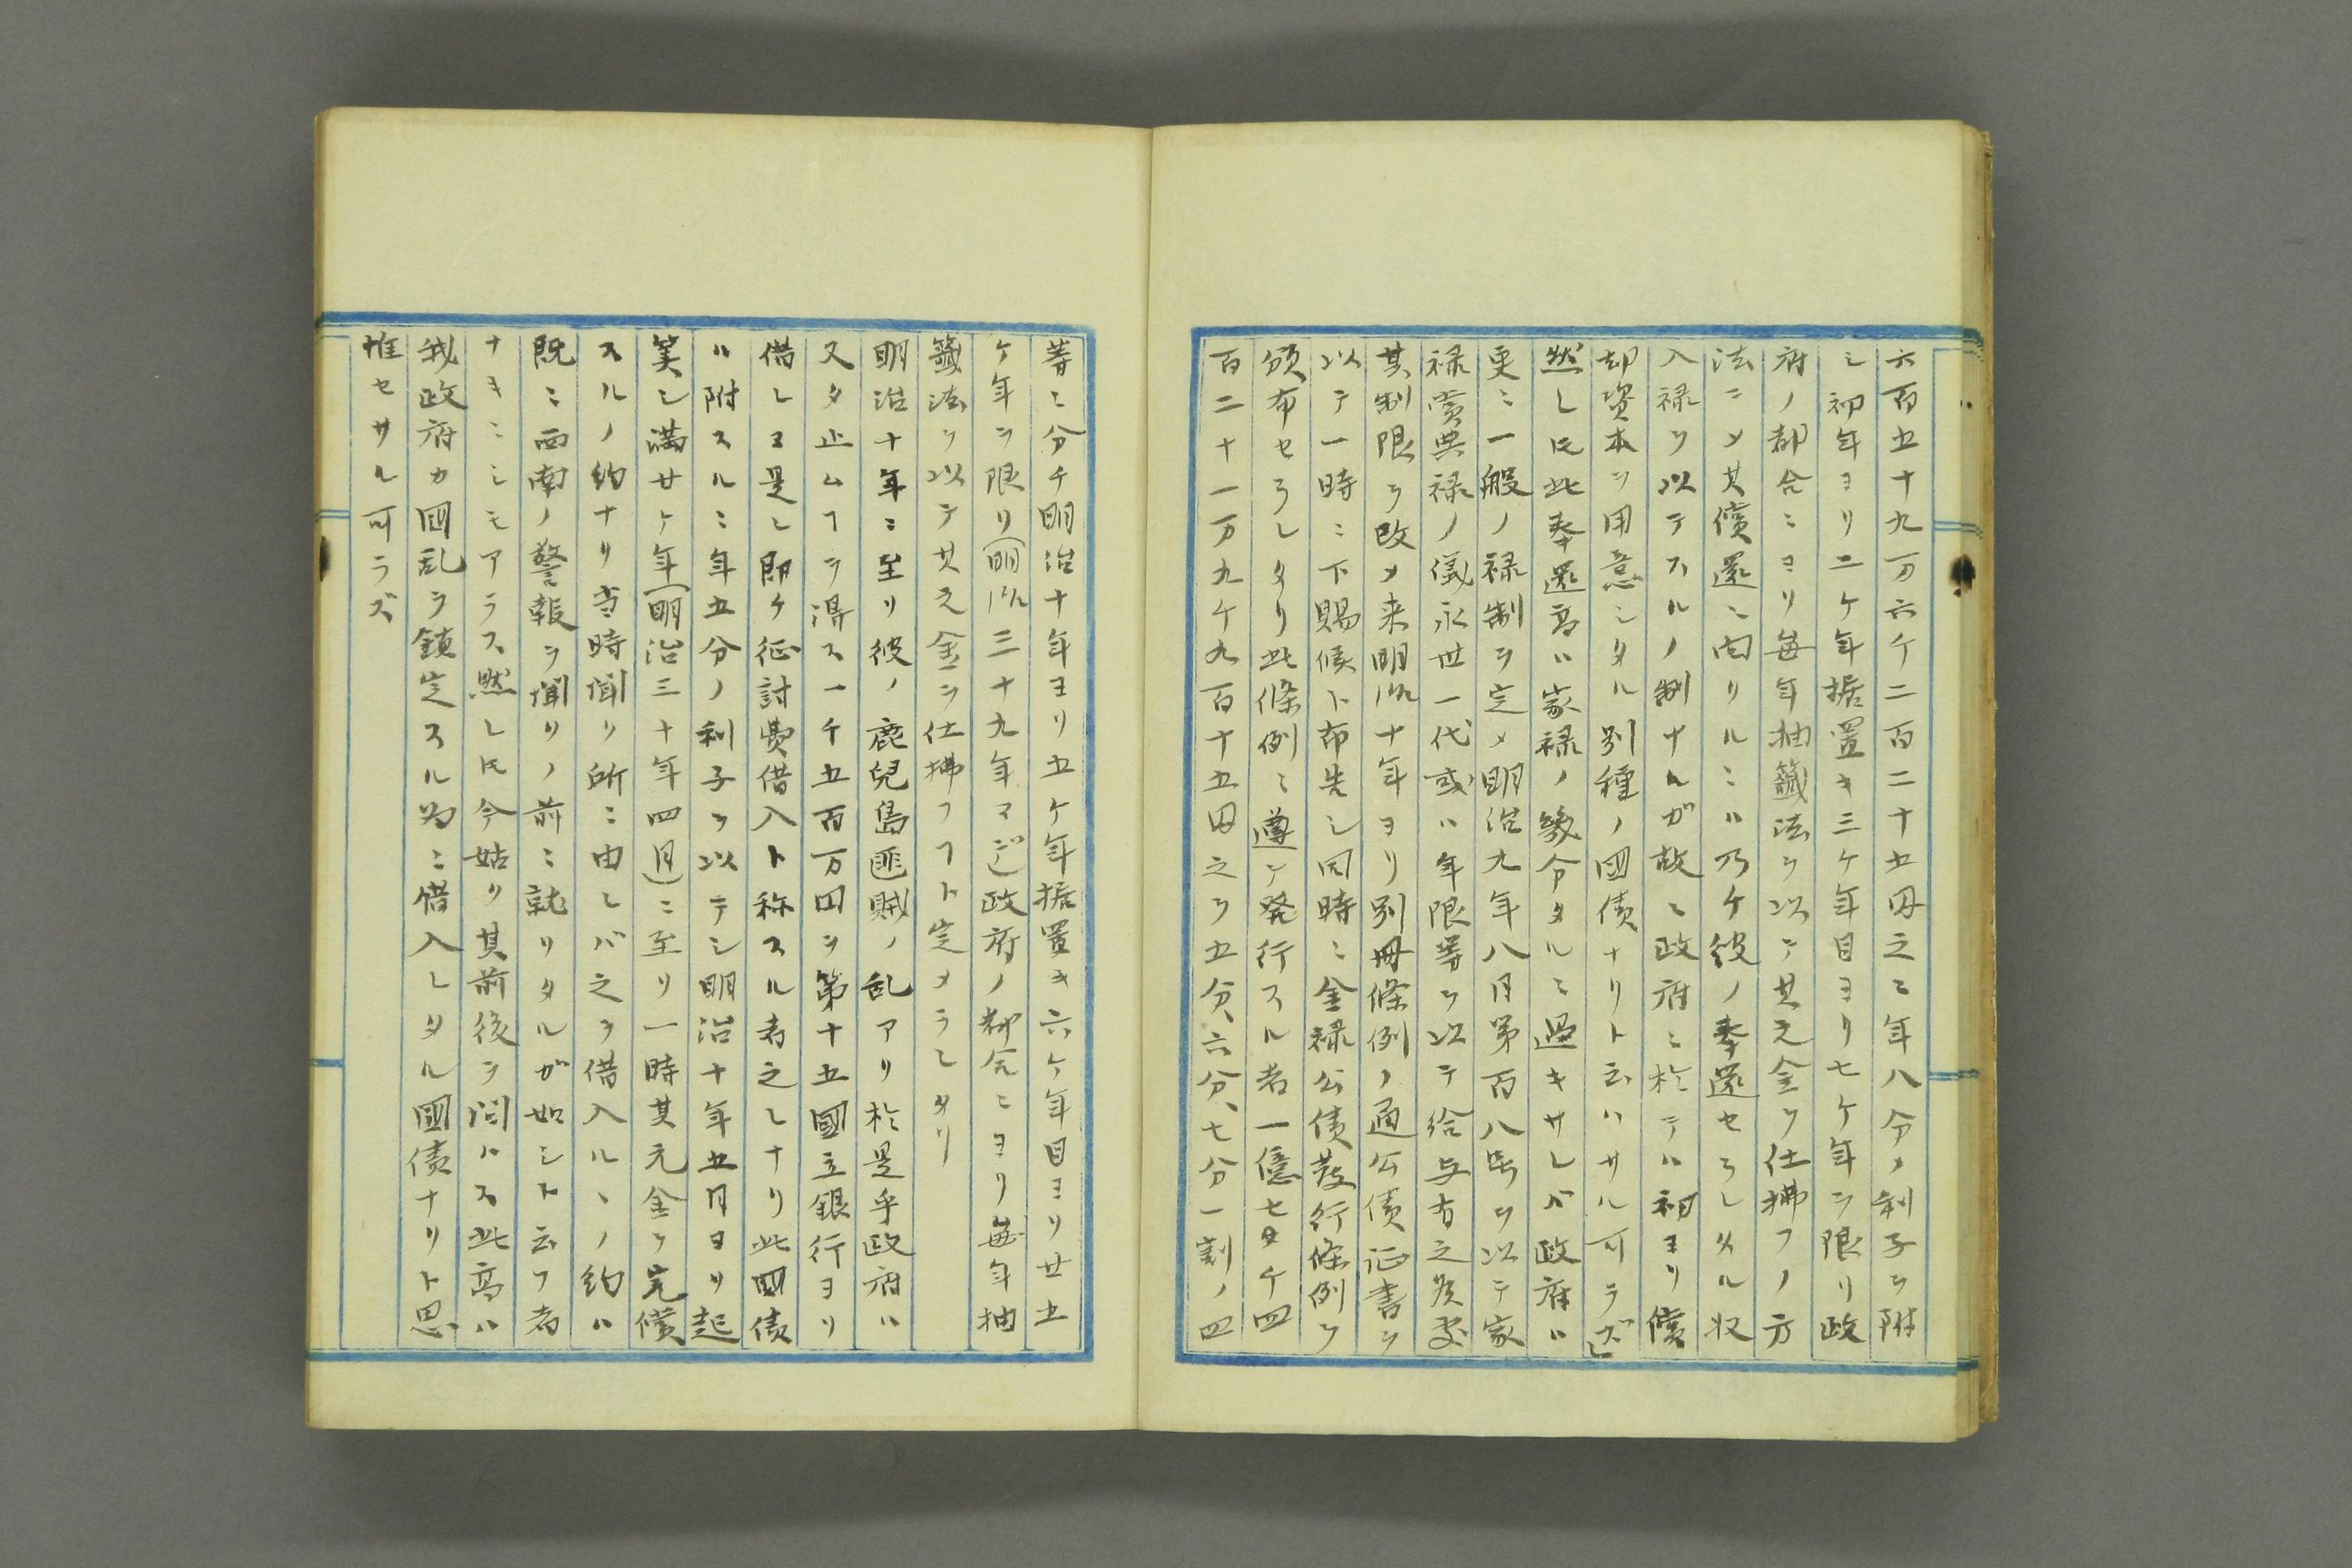 六百五十九万六千二百二十五円之ニ年八分ノ利子ヲ附
シ初年ヨリ二ケ年据置キ三ケ年目ヨリ七ケ年ヲ限リ政
府ノ都合ニヨリ毎年抽籤法ヲ以テ其元金ヲ仕拂フノ方
法ニメ其償還ニ向リルニハ乃ケ彼ノ奉還セラレタル収
入禄ヲ以テスルノ制ナルガ故ニ政府ニ於テハ初ヨリ償
却資本ヲ用意シタル別種ノ國債ナリト云ハサル可ラズ
然レ圧此奉還高ハ家禄ノ幾分タルニ過キサレバ政府ハ
更ニ一般ノ禄制ヲ定メ明治九年八月第百八号ヲ以テ家
禄賞典禄ノ儀永世一代或ハ年限等ヲ以テ給与有之候処
其制限ヲ改メ来明治十年ヨリ別冊條例ノ通公債証書ヲ
以テ一時ニ下賜候ト布告シ同時ニ金禄公債發行條例ヲ
頒布セラレタリ此條例ニ遵テ発行スル者一億七百千四
百二十一万九千九百十五円之ヲ五分六分、七分一割ノ四
等ニ分チ明治十年ヨリ五ケ年据置キ六ケ年目ヨリ廿五
ケ年ヲ限リ(明治三十九年マデ)政府ノ都合ニヨリ毎年抽
籤法ヲ以テ其元金ヲ仕拂フヿト定メラレタリ
明治十年ニ至リ彼ノ鹿兒島匪賊ノ乱アリ於是乎政府ハ
又タ止ムヿヲ得ス一千五百万円ヲ第十五國立銀行ヨリ
借レヨ是レ即ケ征討費借入ト称スル者之レナリ此国債
ハ附スルニ年五分ノ利子ヲ以テシ明治十年五月ヨリ起
筭シ満廿ケ年(明治三十年四月)ニ至リ一時其元金ヲ完償
スルノ約ナリ当時聞ク所ニ由レバ之ヲ借入ルヽノ約ハ
既ニ西南ノ警報ヲ聞リノ前ニ就リタルガ如シト云フ者
ナキニシモアラス然レ圧今姑リ其前後ヲ問ハス此高ハ
我政府カ國乱ヲ鎮定スル為ニ借入レタル國債ナリト思
惟セサル可ラズ